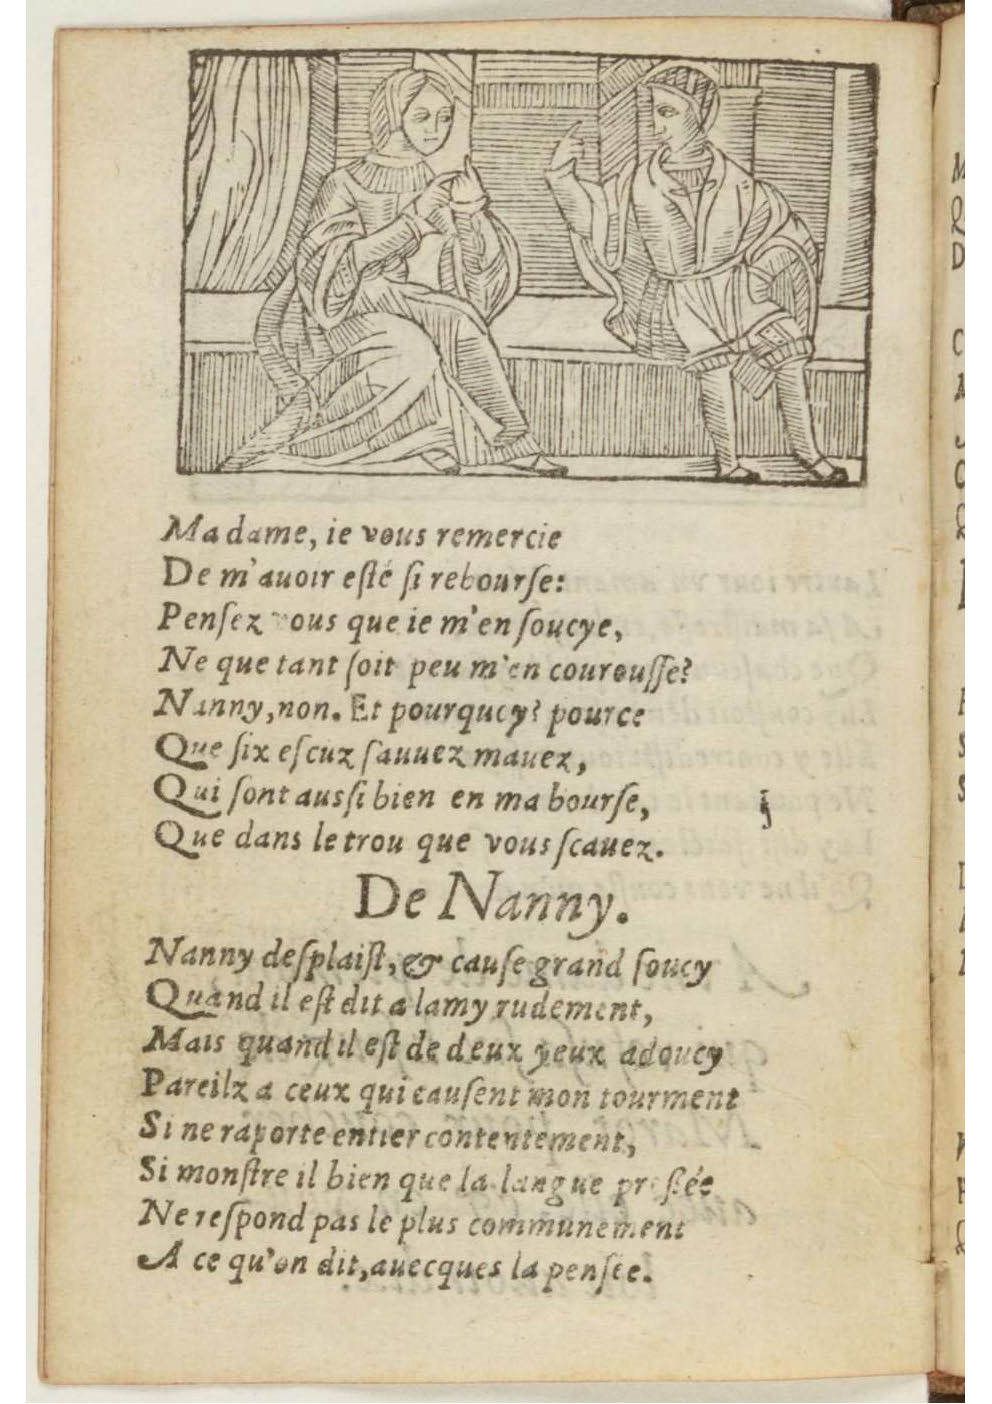 Madame, ie vous remercie
De m'auoir esté si rebourse:
Pensez vous que ie m'en soucye,
Ne que tant soit peu m'en courousse?
Nanny, non. Et pourquoy? pource
Que six escuz sauuez mauez,
Qui sont aussi bien en ma bourse,
Que dans le trou que vous scauez.
De Nanny.
Nanny desplaist, & cause grand soucy
Quand il est dit a lamy rudement,
Mais quand il est de deux yeux adoucy
Pareilz a ceux qui causent mon tourment
Si ne raporte entier contentement,
Si monstre il bien que la langue pressée
Ne respond pas le plus communement
A ce qu'on dit, auecques la pensée.